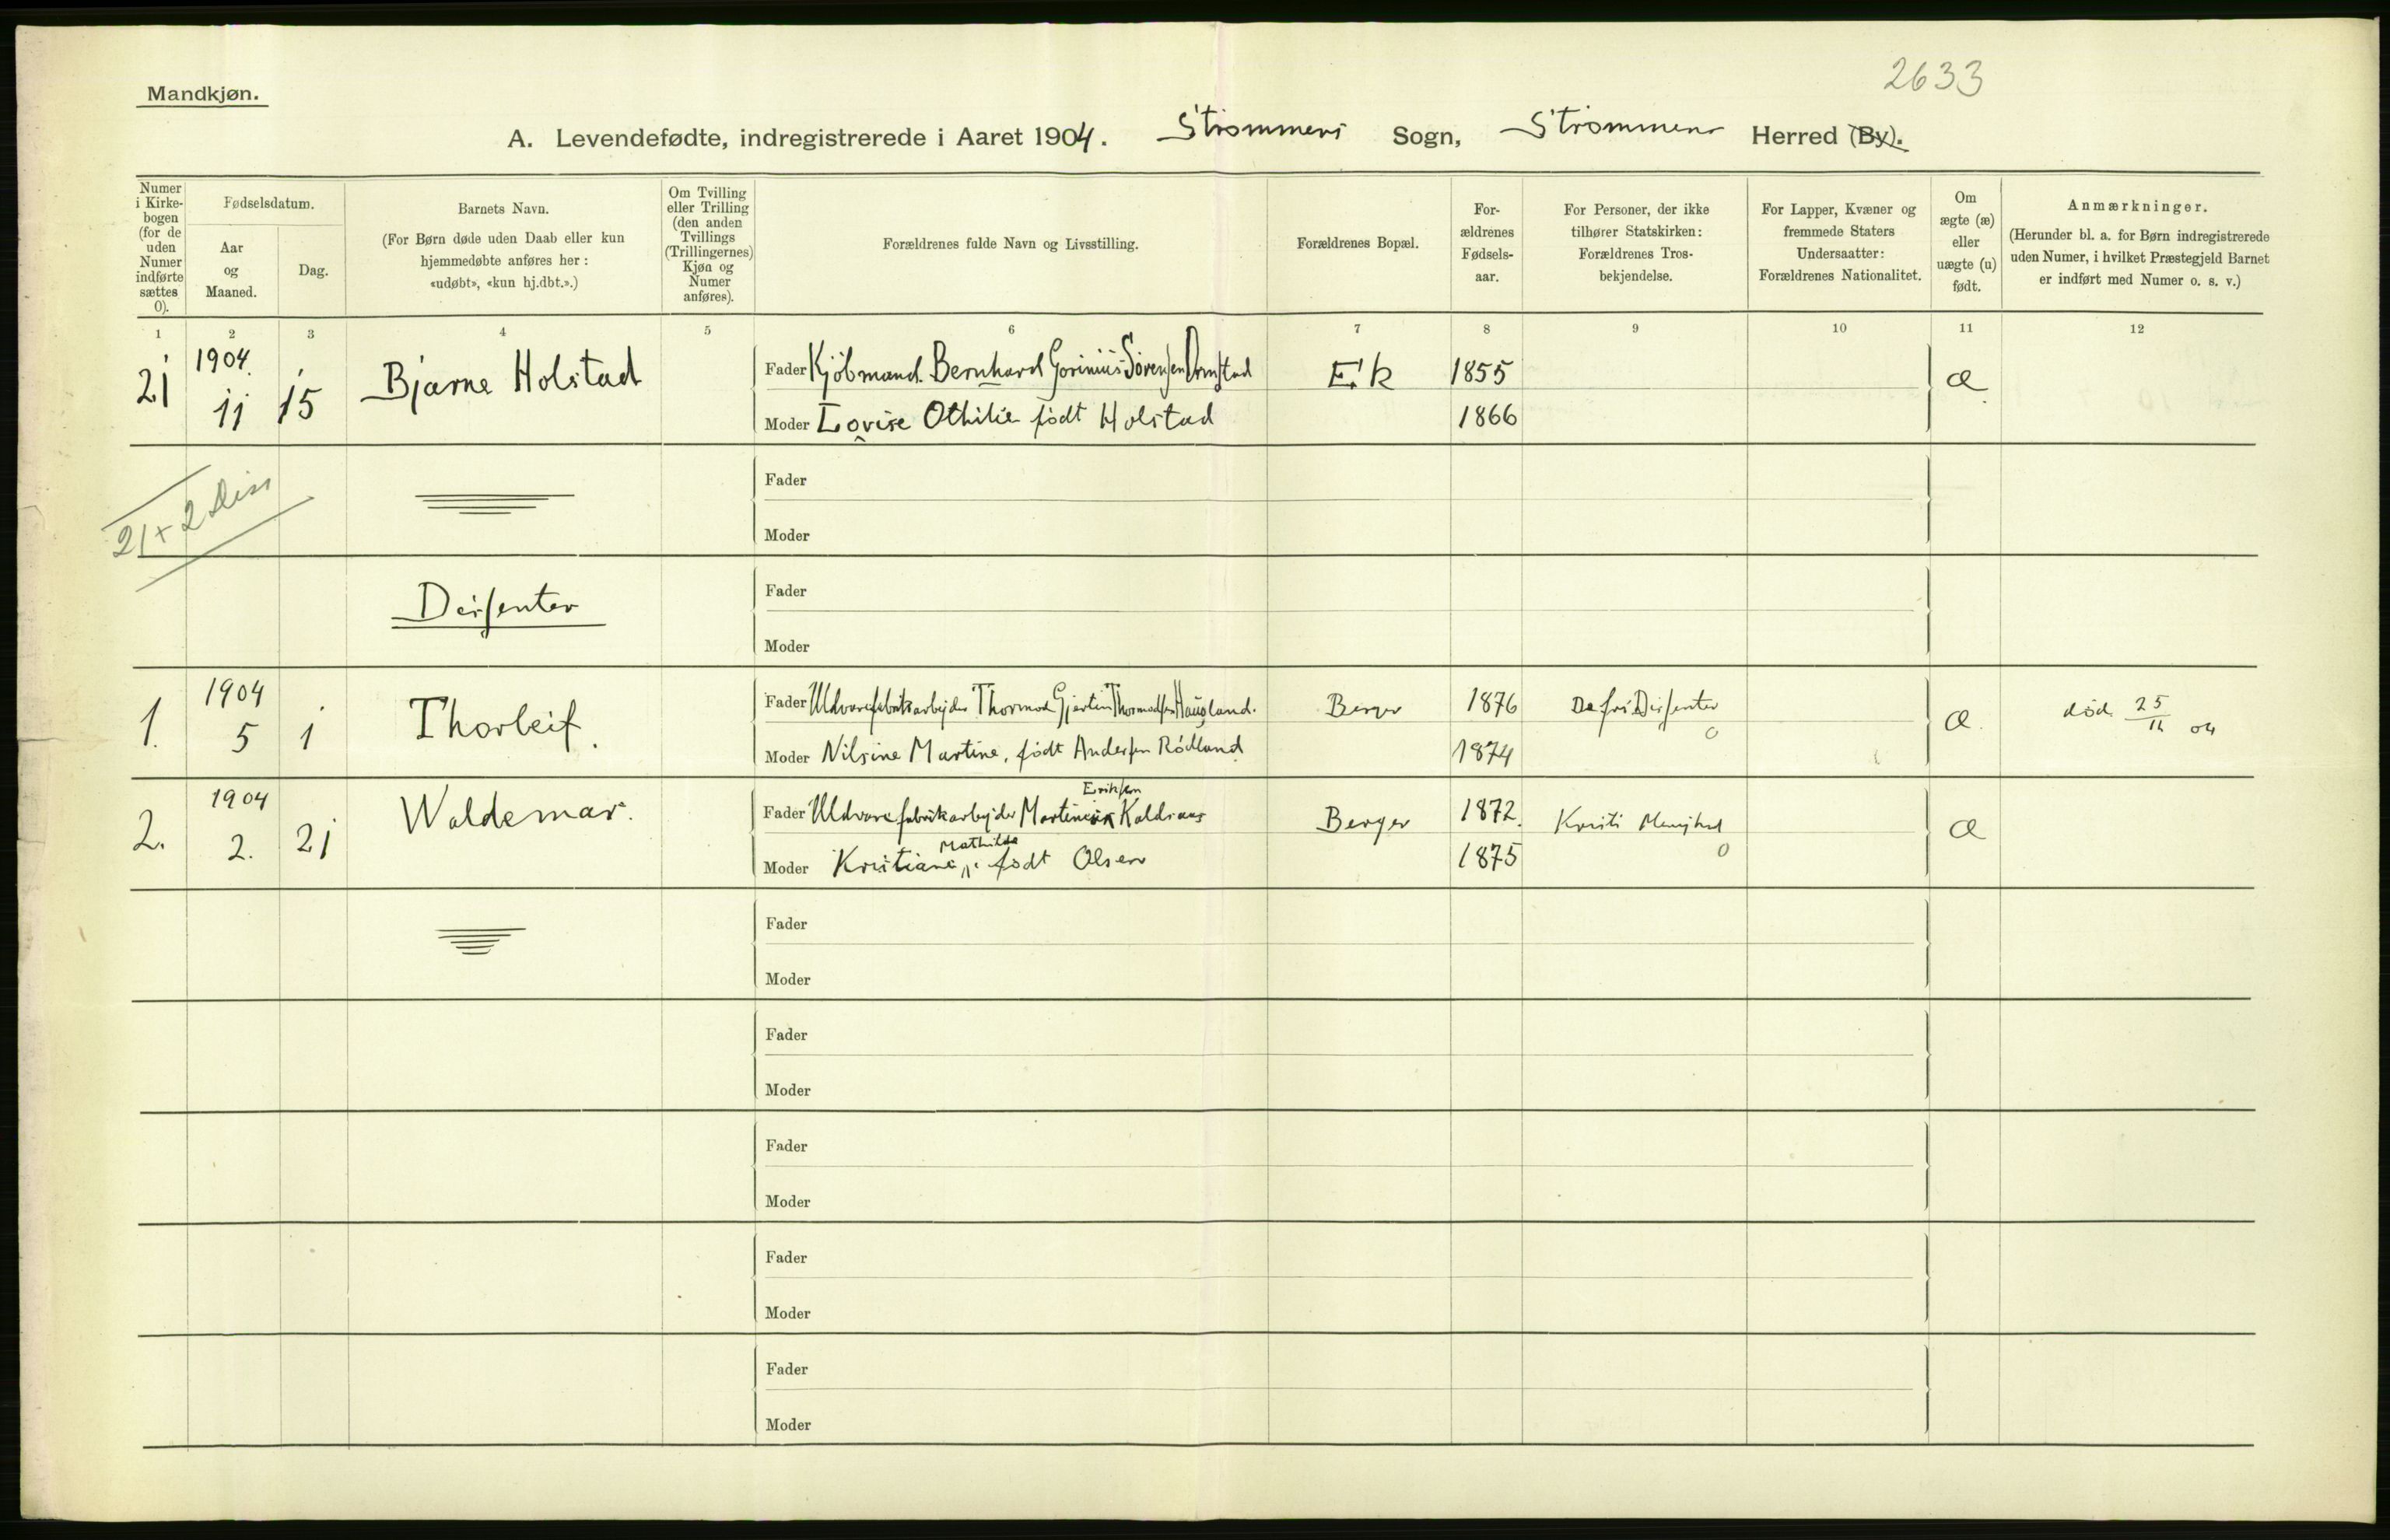 2633
Mandkjøn.
A. Levendefødte, indregistrerede i Aaret 1904. Strømmens Sogn, Strømmens Herred (By).
Numer i Kirkebogen (for de uden Numer indførte sættes 0).
Fødselsdatum.
Aar og Maaned.
Dag.
Barnets Navn.
(For Børn døde uden Daab eller kun hjemmedøbte anføres her: «udøbt», «kun hj.dbt.».)
Om Tvilling eller Trilling (den anden Tvillings (Trillingernes) Kjøn og Numer anføres).
Forældrenes fulde Navn og Livsstilling.
Forældrenes Bopæl.
Forældrenes Fødselsaar.
For Personer, der ikke tilhører Statskirken: Forældrenes Trosbekjendelse.
For Lapper, Kvæner og fremmede Staters Undersaatter: Forældrenes Nationalitet.
Om ægte (æ) eller uægte (u) født.
Anmærkninger.
(Herunder bl. a. for Børn indregistrerede uden Numer, i hvilket Præstegjeld Barnet er indført med Numer o. s. v.)
1 2 3 4 5 6 7 8 9 10 11 12
21 1904 11 15 Bjarne Holstad
Fader Kjøbmand Bernhard Sørensen Ek 1855 æ
Moder Lovise Othilie født Holstad 1866
21 + 2 Diss
Fader
Moder
Dissenter
Fader
Moder
1. 1904 5 1 Thorleif.
Fader Uldvarefabrikarbejder Thormod Gjertin Thormodsen Haugland. Berger 1876 De fri Dissenter 0 æ. død 25/11 04
Moder Nilsine Martine, født Andersen Rødland 1874
2. 1904 2. 21 Waldemar.
Eriksen
Fader Uldvarefabrikarbejder Kaldraas Berger 1872. Kristi Menighed 0 æ
Mathilde
Moder Kristiane født Olsen 1875
Fader
Moder
Fader
Moder
Fader
Moder
Fader
Moder
Fader
Moder